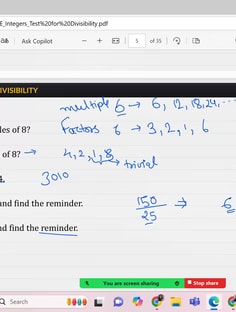 E_Integers_Test%20for%20Divisibility.pdf
Ask Copilot
1 of 35
IVISIBILITY
multiple 6 → 6, 12, 18, 24, ...
les of 8?
factors 6 → 3, 2, 1, 6
of 8? → 4, 2, 1, 8 → trivial
3010
and find the reminder.
150
25
⇒ 6
nd find the reminder.
You are screen sharing
Stop share
Search